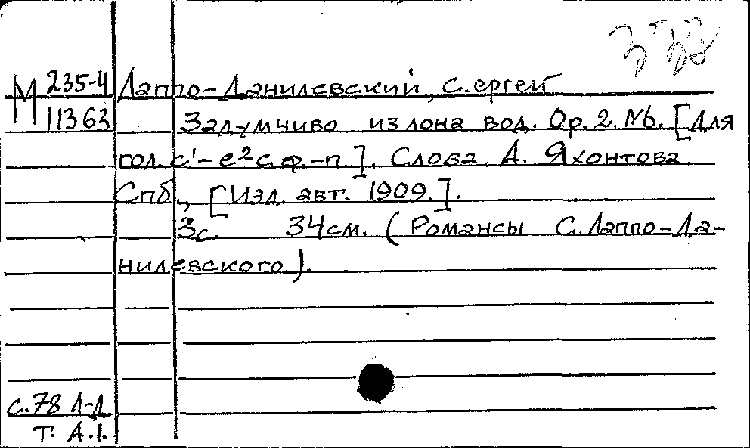 М 235-4 Лаппо-Данилевский, Сергей
11363 Задумчиво из лона вод. Op. 2. №6. [Для
гол. c¹-e² с ф.-п]. Слова А. Яхонтова
Спб., [Изд. авт. 1909.].
3с. 34см. (Романсы С. Лаппо-Да-
нилевского).
с.78 Л-Д
Т. А.I.